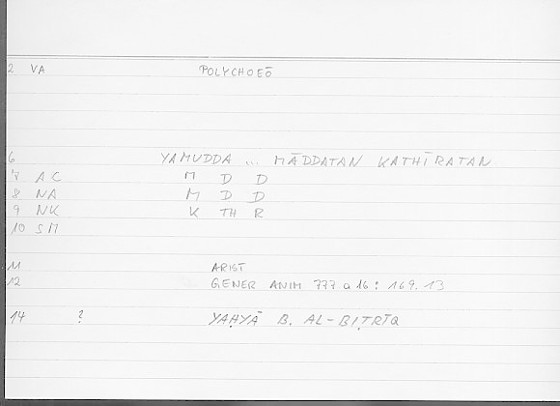 2 VA POLYCHOEŌ
6 YAMUDDA ... MĀDDATAN KATHĪRATAN
7 AC M D D
8 NA M D D
9 NK K TH R
10 SM
11 ARIST
12 GENER ANIM 777 a 16 : 169.13
14 ? YAḤYĀ B. AL-BIṬRĪQ